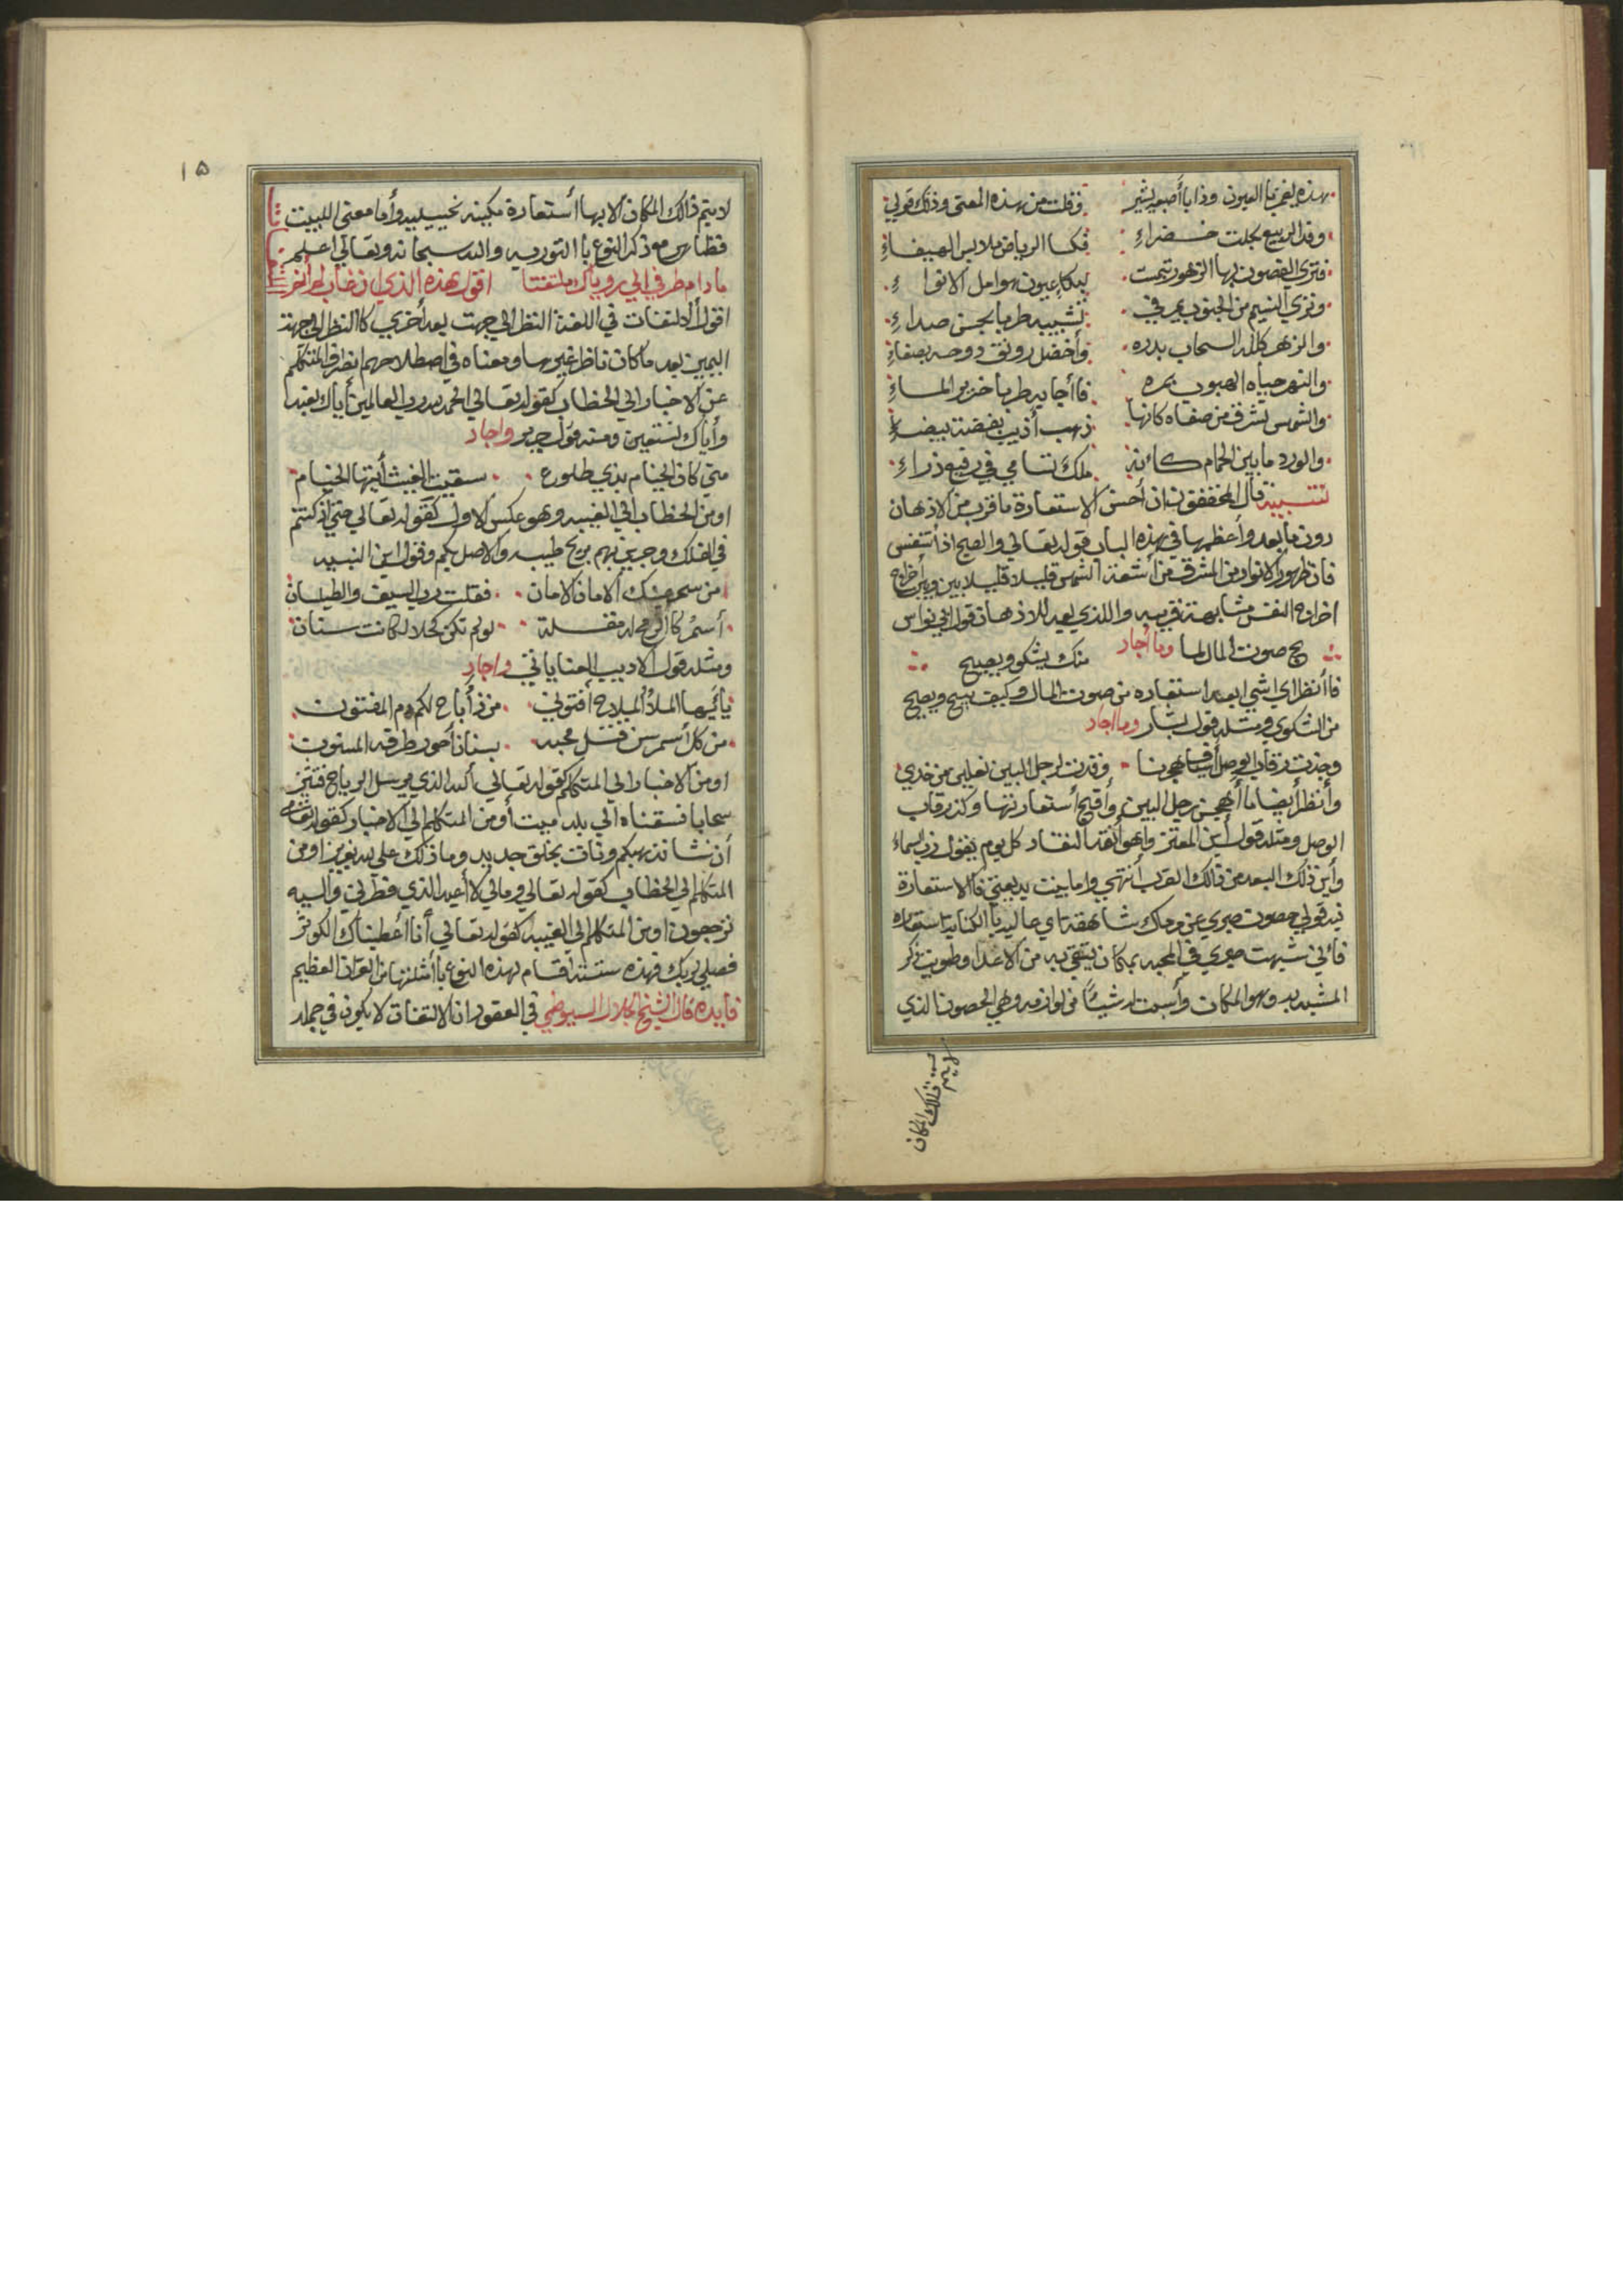 بهذه يغمر بها العيون وذا باأصبعه يشير فقلت من هذه المعنى وذلك قولي
وقد الربيع بجلت خضراء فكسا الرياض ملابس الهيفاء
فترى الغصون بها الزهور تبسمت لبكاء عيون هوامل الانواء
وترى النسيم من الجنوب يمر في تشبيبه طربا بحسن صداء
والزهر كلله السحاب بدره وأخضل رونق دوحه بصفاء
والنهر حياه الهبوب بمره فاأجابه طربا خرير الماء
والشمس تشرق من صفاه كانها ذهب أذيب بفضة بيضاء
والورد ما بين الحمام كاءنه ملك تسامى في رفيع ذراء
تنبيه قال المحققون ان أحسن الاستعارة ما قرب من الاذهان
دون ما بعد وأعظمها في هذه الباب قوله تعالي والصبح اذا أتنفس
فان ظهور الانوار من المشرق من أشعة الشمس قليلا قليلا بين وبين أخراج
اخراج النفس مشابهة قريبه والذي بعيد للاذهان قول ابي نواس
بح صوت المال لما وما أجاد منك يشكو ويصيح
فاأنظر الي اشي ابعد استعاره من صوت المال وكيف يبيح ويصيح
من الشكوي ومثله قول بشار وما اجاد
وجذت رقاب الوصل أسياف هجرنا وقدت لرجل البين نعلين من خدي
وأنظر أيضا ما أهجن رجل البين وأقبح أستعارتها وكذ رقاب
الوصل ومثله قول أبن المعتز واهو أنقد النقاد كل يوم يبول زب السماء
وأين ذلك البعد من ذالك القرب أنتهي واما بيت بديعيتي فاالاستعارة
فيه قولي حصون صبري عن مرماك شاهقة اي عاليه باالكناية استعاره
فائني شبهت صبري في المحبه بمكان يتقي به من الاعدا وطويت ذكر
المشبه به وهو المكان وأسمت له شيئاً من لوازمه وهي الحصون الذي
لا يتم ذالك المكان
١٥
لايتم ذالك المكان الا بها أستعارة مكينه تخييليه وأما معنى البيت
فظاهر مع ذكر النوع باا التوريه والله سبحانه وتعالي اعلم
ما دام طرفي الي روياك ملتفتا اقول هذه الذي
اقول الالتفات في اللغة النظر الي جهت بعد أخري كاالنظر الي جهة
اليمين بعد ما كان ناظر غيرها ومعناه في اصطلاحهم انصراف المتكلم
عن الاخبار الي الخطاب كقوله تعالي الحمد لله رب العالمين أياك نعبد
وأياك نستعين ومنه قول جرير واجاد
متي كان الخيام بذي طلوع سقيت الغيث أيتها الخيام
اومن الخطاب الي الغيبه وهو عكس الاول كقوله تعالي حتي اذ كنتم
في الفلك وجرين بهم بريح طيبه والاصل بكم وقول ابن النبيه
من سحر عينك الامان الامان فقلت رب السيف والطيلسان
أسمر كاالرمح له مقلة لو لم تكن كحلا لكانت سنان
ومثله قول الاديب العناياتي واجاد
يائيها الملأ الملاح أفتوني من ذ أباح لكم دم المفتون
من كل أسمر سن قتل محبه بسنان أحور طرفه المسنون
اومن الاخبار الي المتكلم كقوله تعالي ألله الذي يرسل الرياح فتثير
سحابا فسقناه الي بلد ميت أومن المتكلم الي الاخبار كقوله تعالي
أن نشا نذهبكم ونات بخلق جديد وما ذلك على الله بعزيز اومن
المتكلم الي الخطاب كقوله تعالي ومالي لا أعبد الذي فطرني واليه
ترجعون اومن المتكلم الي الغيبه كقوله تعالي أنا أعطيناك الكوثر
فصلي لربك فهذه ستة اقسام لهذه النوع باأمثلتها من القران العظيم
فايده قال الشيخ جلال السيوطي في العقود ان الالتفات لا يكون في جمله